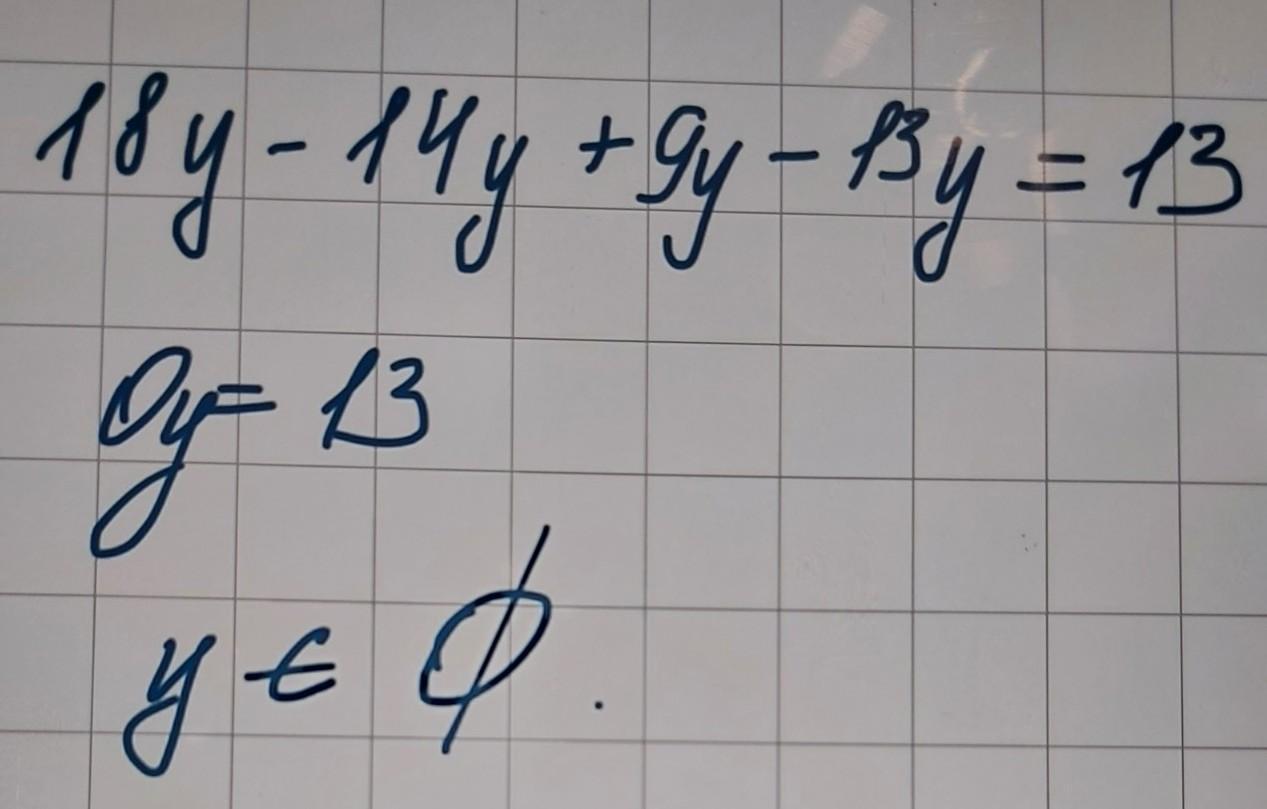 18y - 14y + 9y - 13y = 13
0y = 13
y ∈ ∅.